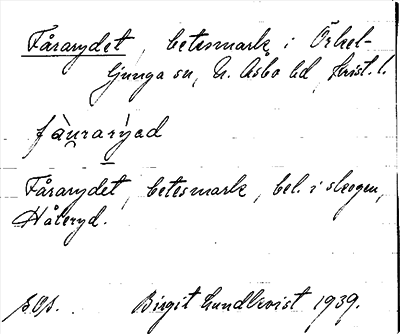 Fårarydet, betesmark i Örkel-
ljunga sn, N. Åsbo hd, Krist. l.
fàu̯raru̇́ad
Fårarydet, betesmark, bel. i skogen,
Håleryd.
Birgit Lundkvist 1939.